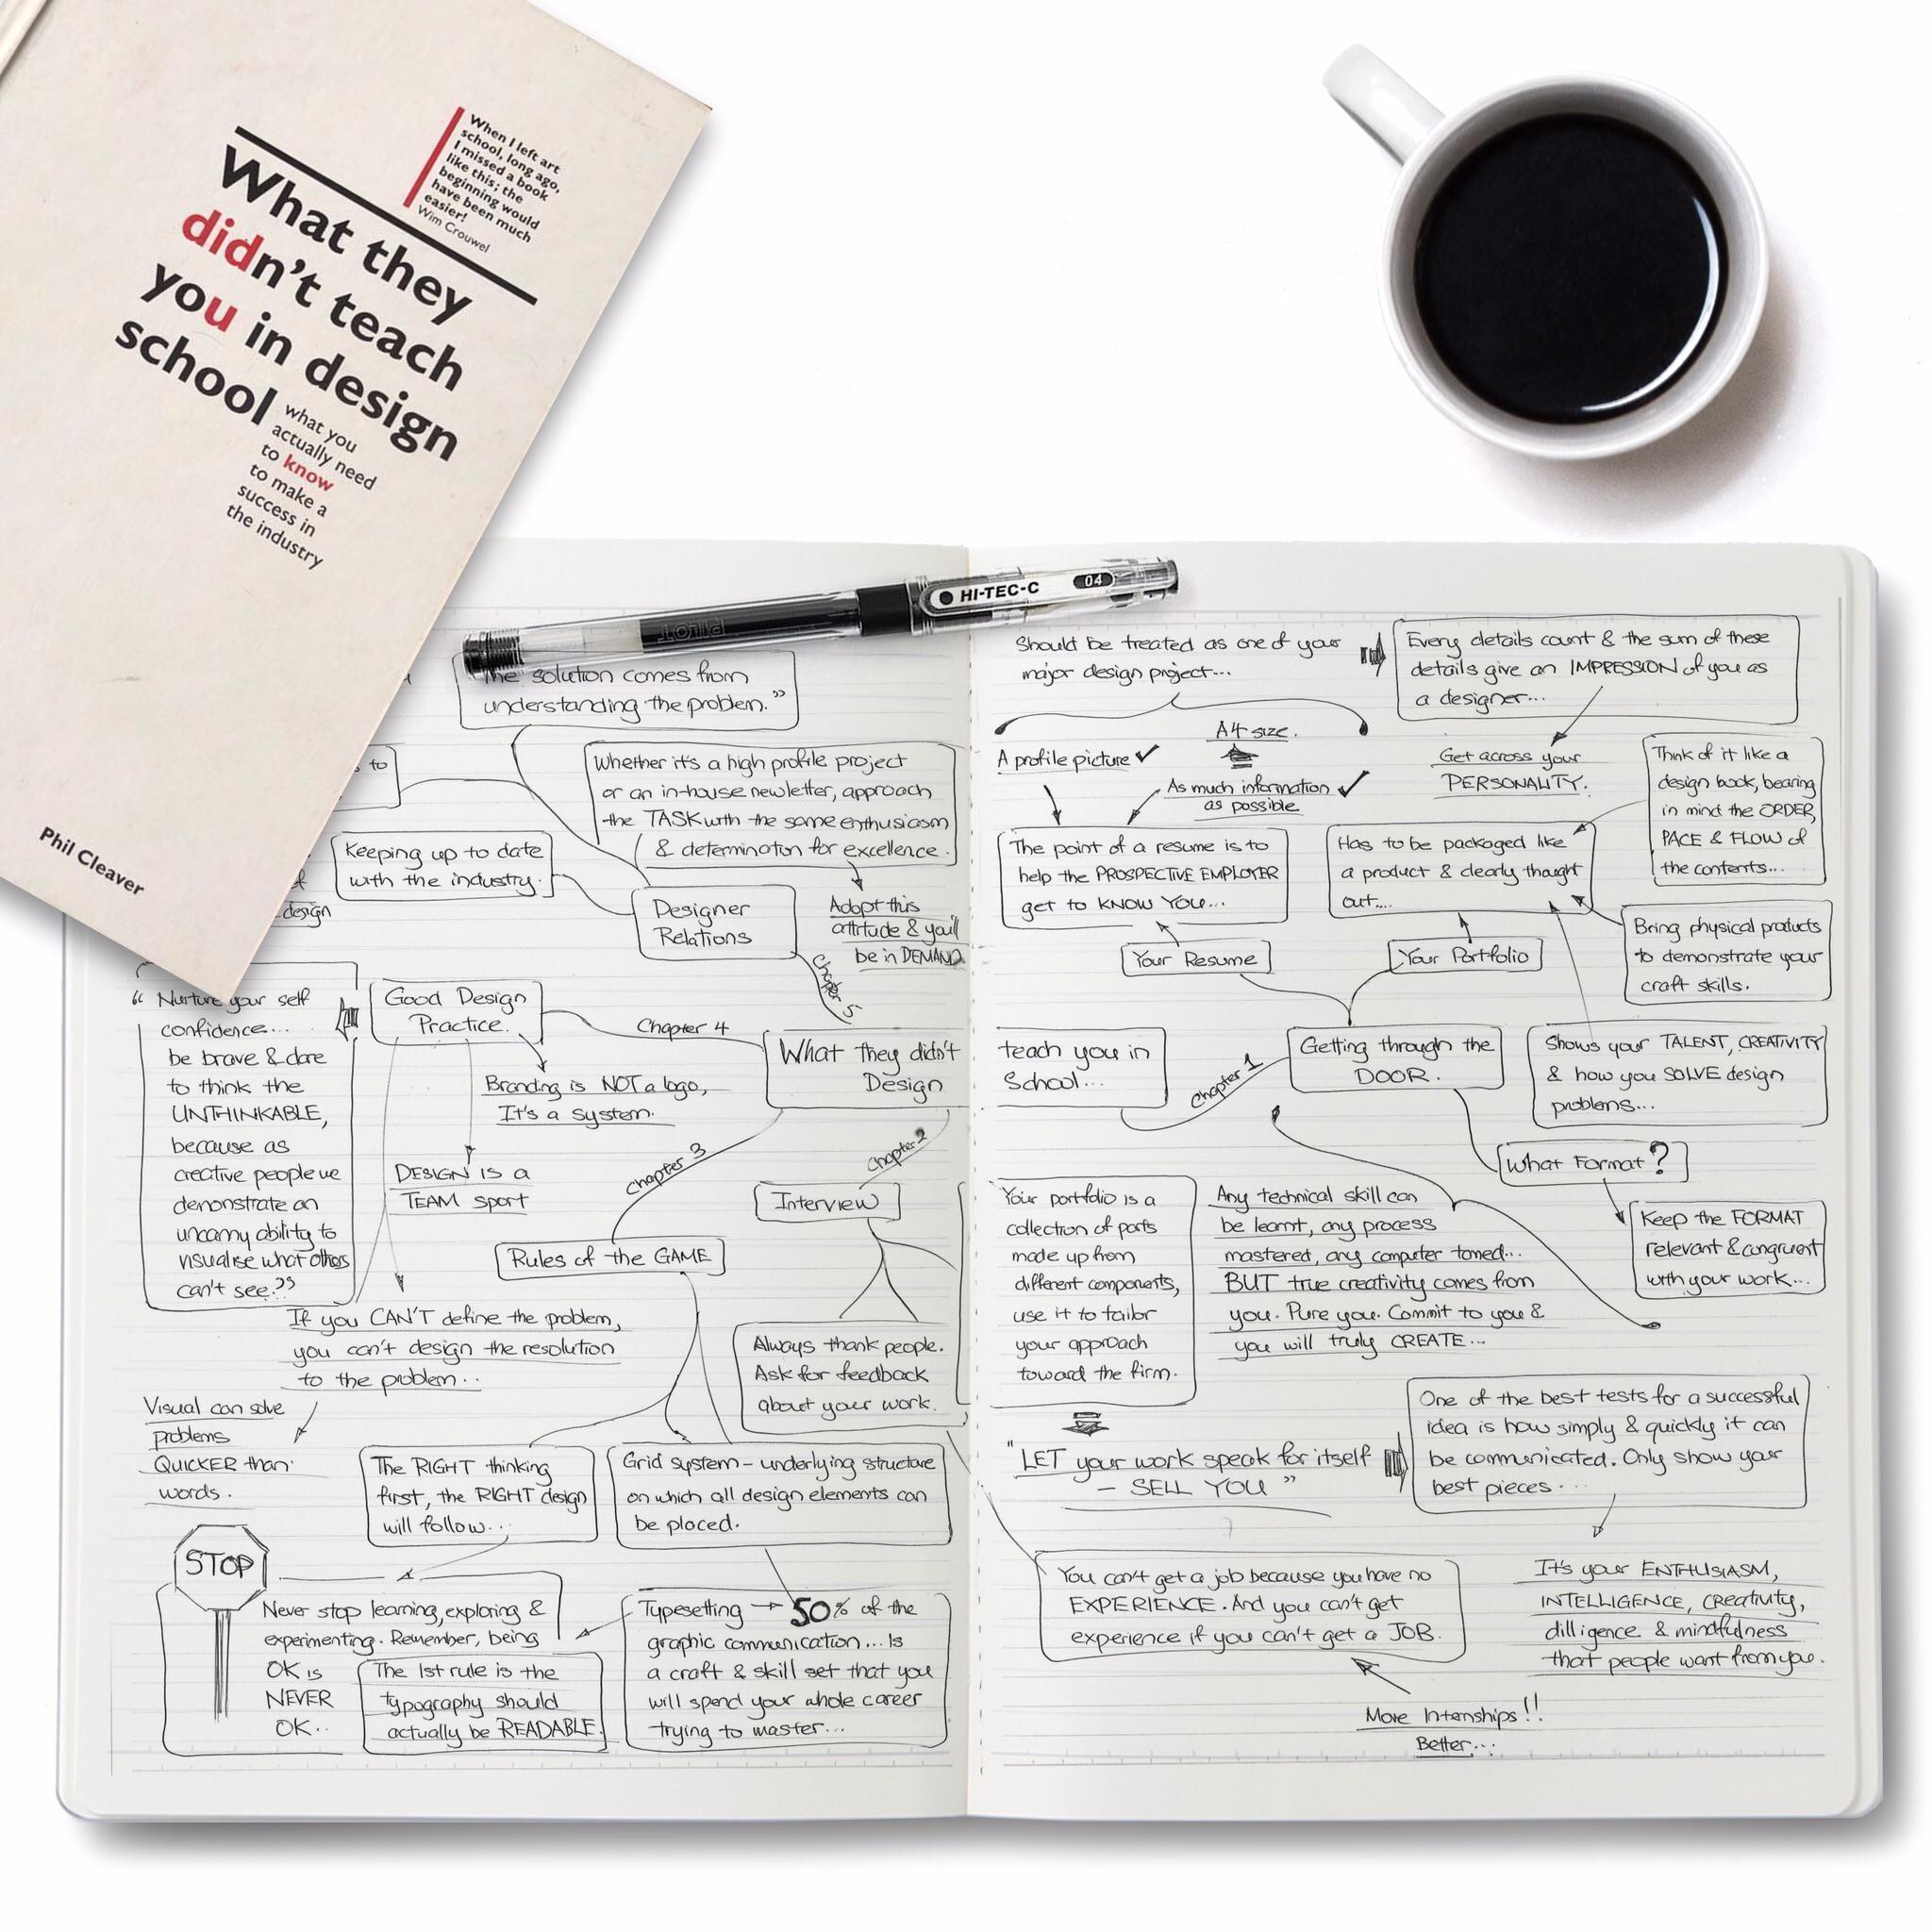 When I left art
school, long ago,
I missed a book
like this; the
beginning would
have been much
easier!
Wim Crouwel
What they
didn't teach
you in design
school
what you
actually need
to know
to make a
success in
the industry
Phil Cleaver
PILOT
HI-TEC-C
04
The solution comes from
understanding the problem."
to
Whether it's a high profile project
or an in-house newletter, approach
the TASK with the same enthusiasm
& determination for excellence.
Keeping up to date
with the industry.
design
Designer
Relations
Adopt this
attitude & you'll
be in DEMAND
Chapter 5
" Nurture your self
confidence...
be brave & dare
to think the
UNTHINKABLE,
because as
creative people we
demonstrate an
uncanny ability to
visualise what others
can't see."
Good Design
Practice.
Chapter 4
What they didn't
Design
Branding is NOT a logo,
It's a system.
DESIGN IS A
TEAM sport
Chapter 3
Chapter 2
Interview
Rules of the GAME
If you CAN'T define the problem,
you can't design the resolution
to the problem..
Always thank people.
Ask for feedback
about your work.
Visual can solve
problems
QUICKER than
words.
The RIGHT thinking
first, the RIGHT design
will follow...
Grid system - underlying structure
on which all design elements can
be placed.
STOP
Never stop learning, exploring &
experimenting. Remember, being
OK is
NEVER
OK..
The 1st rule is the
typography should
actually be READABLE.
Typesetting → 50% of the
graphic communication... Is
a craft & skill set that you
will spend your whole career
trying to master...
Should be treated as one of your
major design project...
Every details count & the sum of these
details give an IMPRESSION of you as
a designer...
A4 size.
A profile picture ✓
As much information ✓
as possible
Get across your
PERSONALITY.
Think of it like a
design book, bearing
in mind the ORDER,
PACE & FLOW of
the contents...
The point of a resume is to
help the PROSPECTIVE EMPLOYER
get to KNOW YOU...
Has to be packaged like
a product & clearly thought
out....
Your Resume
Your Portfolio
Bring physical products
to demonstrate your
craft skills.
teach you in
School...
Chapter 1
Getting through the
DOOR.
Shows your TALENT, CREATIVITY
& how you SOLVE design
problems...
What Format?
Keep the FORMAT
relevant & congruent
with your work...
Your portfolio is a
collection of parts
made up from
different components,
use it to tailor
your approach
toward the firm.
Any technical skill can
be learnt, any process
mastered, any computer tamed...
BUT true creativity comes from
you. Pure you. Commit to you &
you will truly CREATE...
"LET your work speak for itself
- SELL YOU "
One of the best tests for a successful
idea is how simply & quickly it can
be communicated. Only show your
best pieces....
You can't get a job because you have no
EXPERIENCE. And you can't get
experience if you can't get a JOB.
It's your ENTHUSIASM,
INTELLIGENCE, creativity,
dilligence & mindfulness
that people want from you.
More Internships!!
Better...